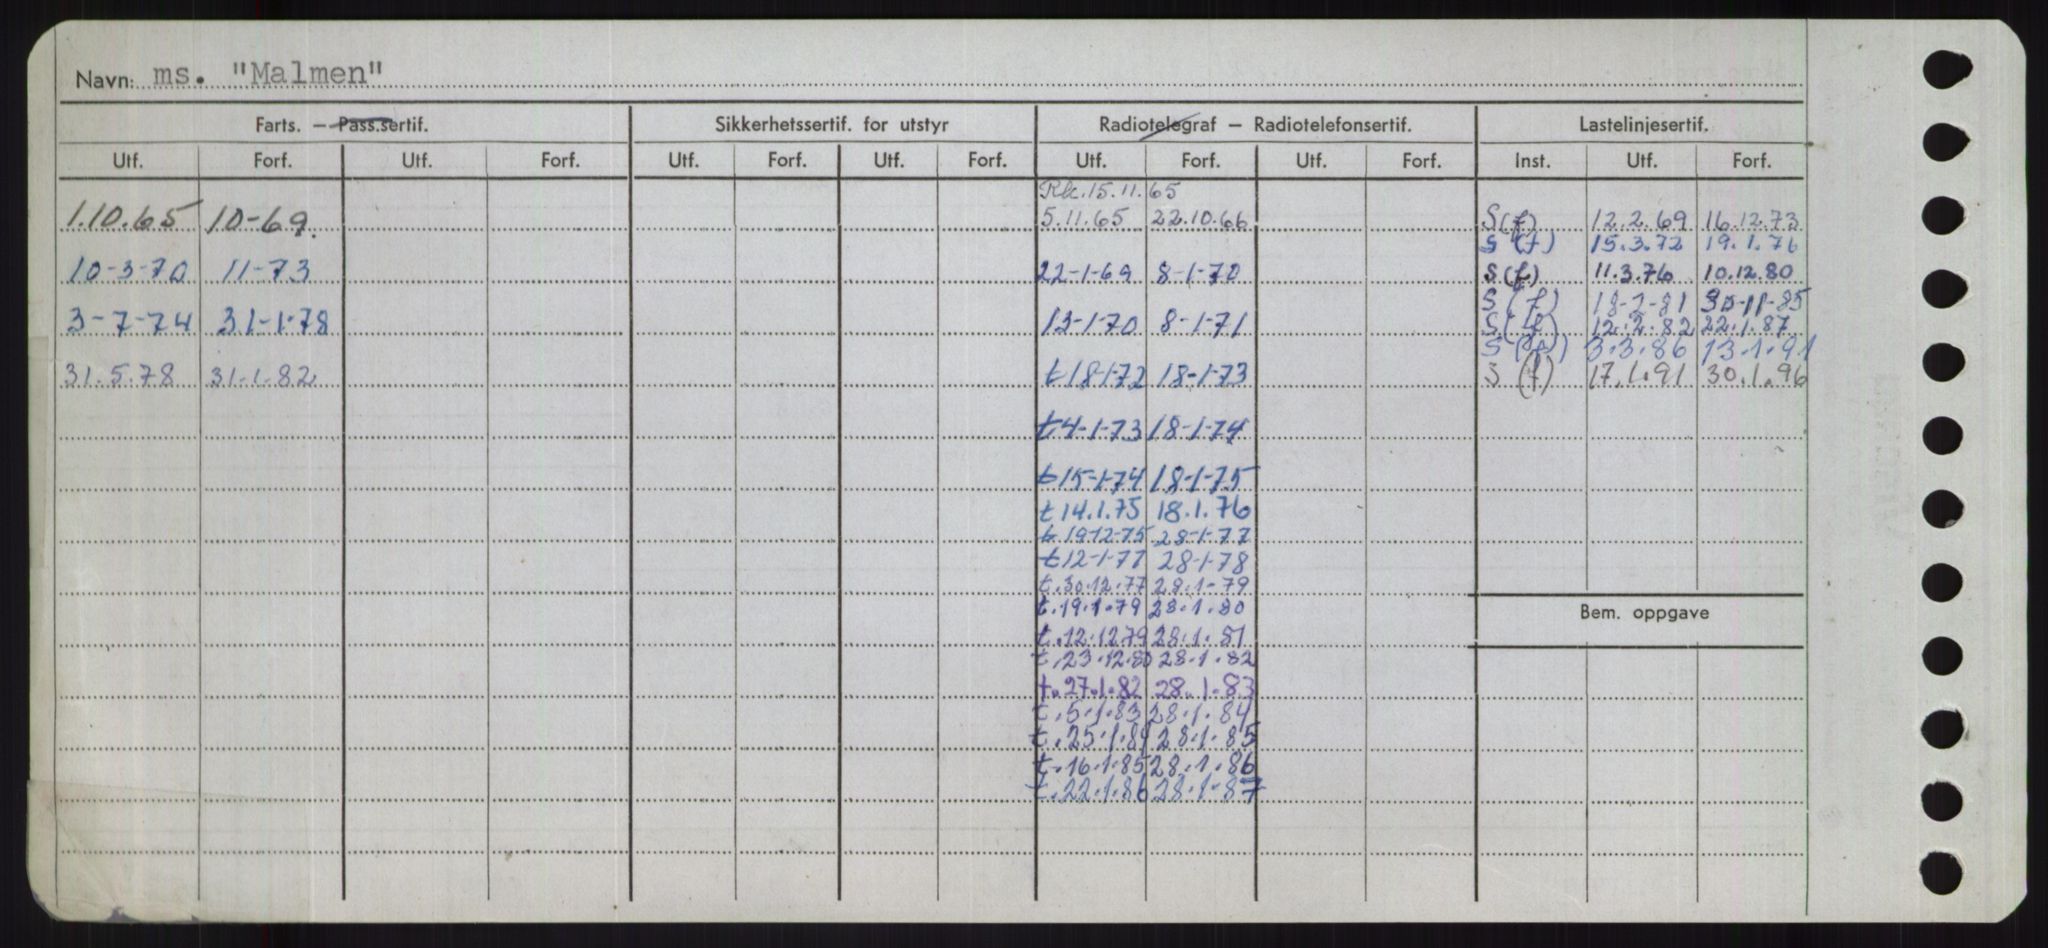 Navn: ms. "Malmen"
Farts. — Pass.sertif. Sikkerhetssertif. for utstyr Radiotelegraf — Radiotelefonsertif. Lastelinjesertif.
Utf. Forf. Utf. Forf. Utf. Forf. Utf. Forf. Utf. Forf. Utf. Forf. Inst. Utf. Forf.
Rk. 15.11.65
1.10.65 10-69. 5.11.65 22.10.66 S(f) 12.2.69 16.12.73
S (f) 15.3.72 19.1.76
10-3-70 11-73 22-1-69 8-1-70 S(f) 11.3.76 10.12.80
S (f) 18-2-81 30-11-85
3-7-74 31-1-78 13-1-70 8-1-71 S(f) 12.2.82 22.1.87
S (f) 3.3.86 13.1.91
31.5.78 31.1.82 t18-1-72 18-1-73 S (f) 17.1.91 30.1.96
t4-1-73 18-1-74
t15-1-74 18-1-75
t14.1.75 18.1.76
t.19-12-75 28-1-77
t12-1-77 28-1-78
t.30.12.77 28.1-79
t.19.1.79 28.1.80
Bem. oppgave
t.12.12.79 28.1.81
t.23.12.80 28.1.82
t.27.1.82 28.1.83
t.5.1.83 28.1.84
t.25.1.84 28.1.85
t.16.1.85 28.1.86
t.22.1.86 28.1.87